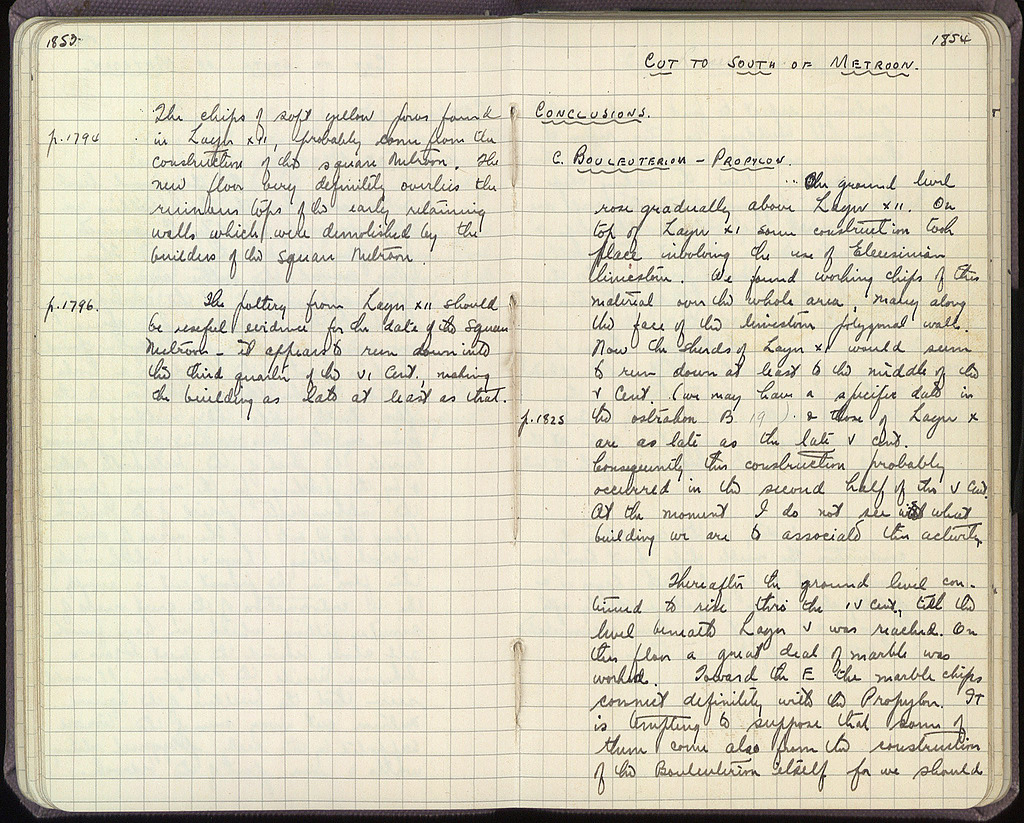 1853.
The chips of soft yellow poros found
p. 1794
in Layer XII, probably come from the
construction of the square Metroon. The
new floor very definitely overlies the
ruinous tops of the early retaining
walls which were demolished by the
builders of the Square Metroon.
p. 1796.
The pottery from Layer XII should
be useful evidence for the date of the Square
Metroon – it appears to run down into
the third quarter of the VI Cent., making
the building as late at least as that.
1854
CUT TO SOUTH OF METROON.
CONCLUSIONS.
C. BOULEUTERION – PROPYLON.
... The ground level
rose gradually above Layer XII. On
top of Layer XI some construction took
place involving the use of Eleusinian
limestone. We found working chips of this
material over the whole area, many along
the face of the limestone polygonal wall.
Now the sherds of Layer XI would seem
to run down at least to the middle of the
V Cent. (we may have a specific date in
p. 1825
the ostrakon B 19 ). & those of Layer X
are as late as the late V cent.
Consequently this construction probably
occurred in the second half of the V Cent.
At the moment I do not see what
building we are to associate this activity.
Thereafter the ground level con-
tinued to rise thro the IV cent., till the
level beneath Layer V was reached. On
this floor a great deal of marble was
worked. Toward the E the marble chips
connect definitely with the Propylon. It
is tempting to suppose that some of
them come also from the construction
of the Bouleuterion itself for we should